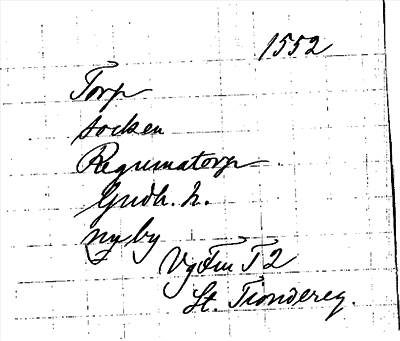 1552
Torp
socken
Regumatorp
Gudh. h.
nyby
Vg Fru T 2
St. Tiondereg.